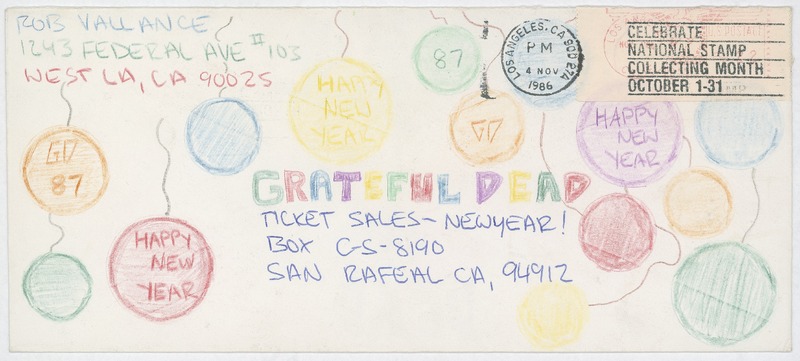 ROB VALLANCE
1243 FEDERAL AVE #103
WEST LA, CA 90025
87
LOS ANGELES, CA 900
PM
4 NOV
1986
CELEBRATE
NATIONAL STAMP
COLLECTING MONTH
OCTOBER 1-31
HAPPY
NEW
YEAR
GD
HAPPY
NEW
YEAR
GD
87
GRATEFUL DEAD
TICKET SALES- NEWYEAR!
BOX C-S-8190
SAN RAFEAL CA, 94912
HAPPY
NEW
YEAR